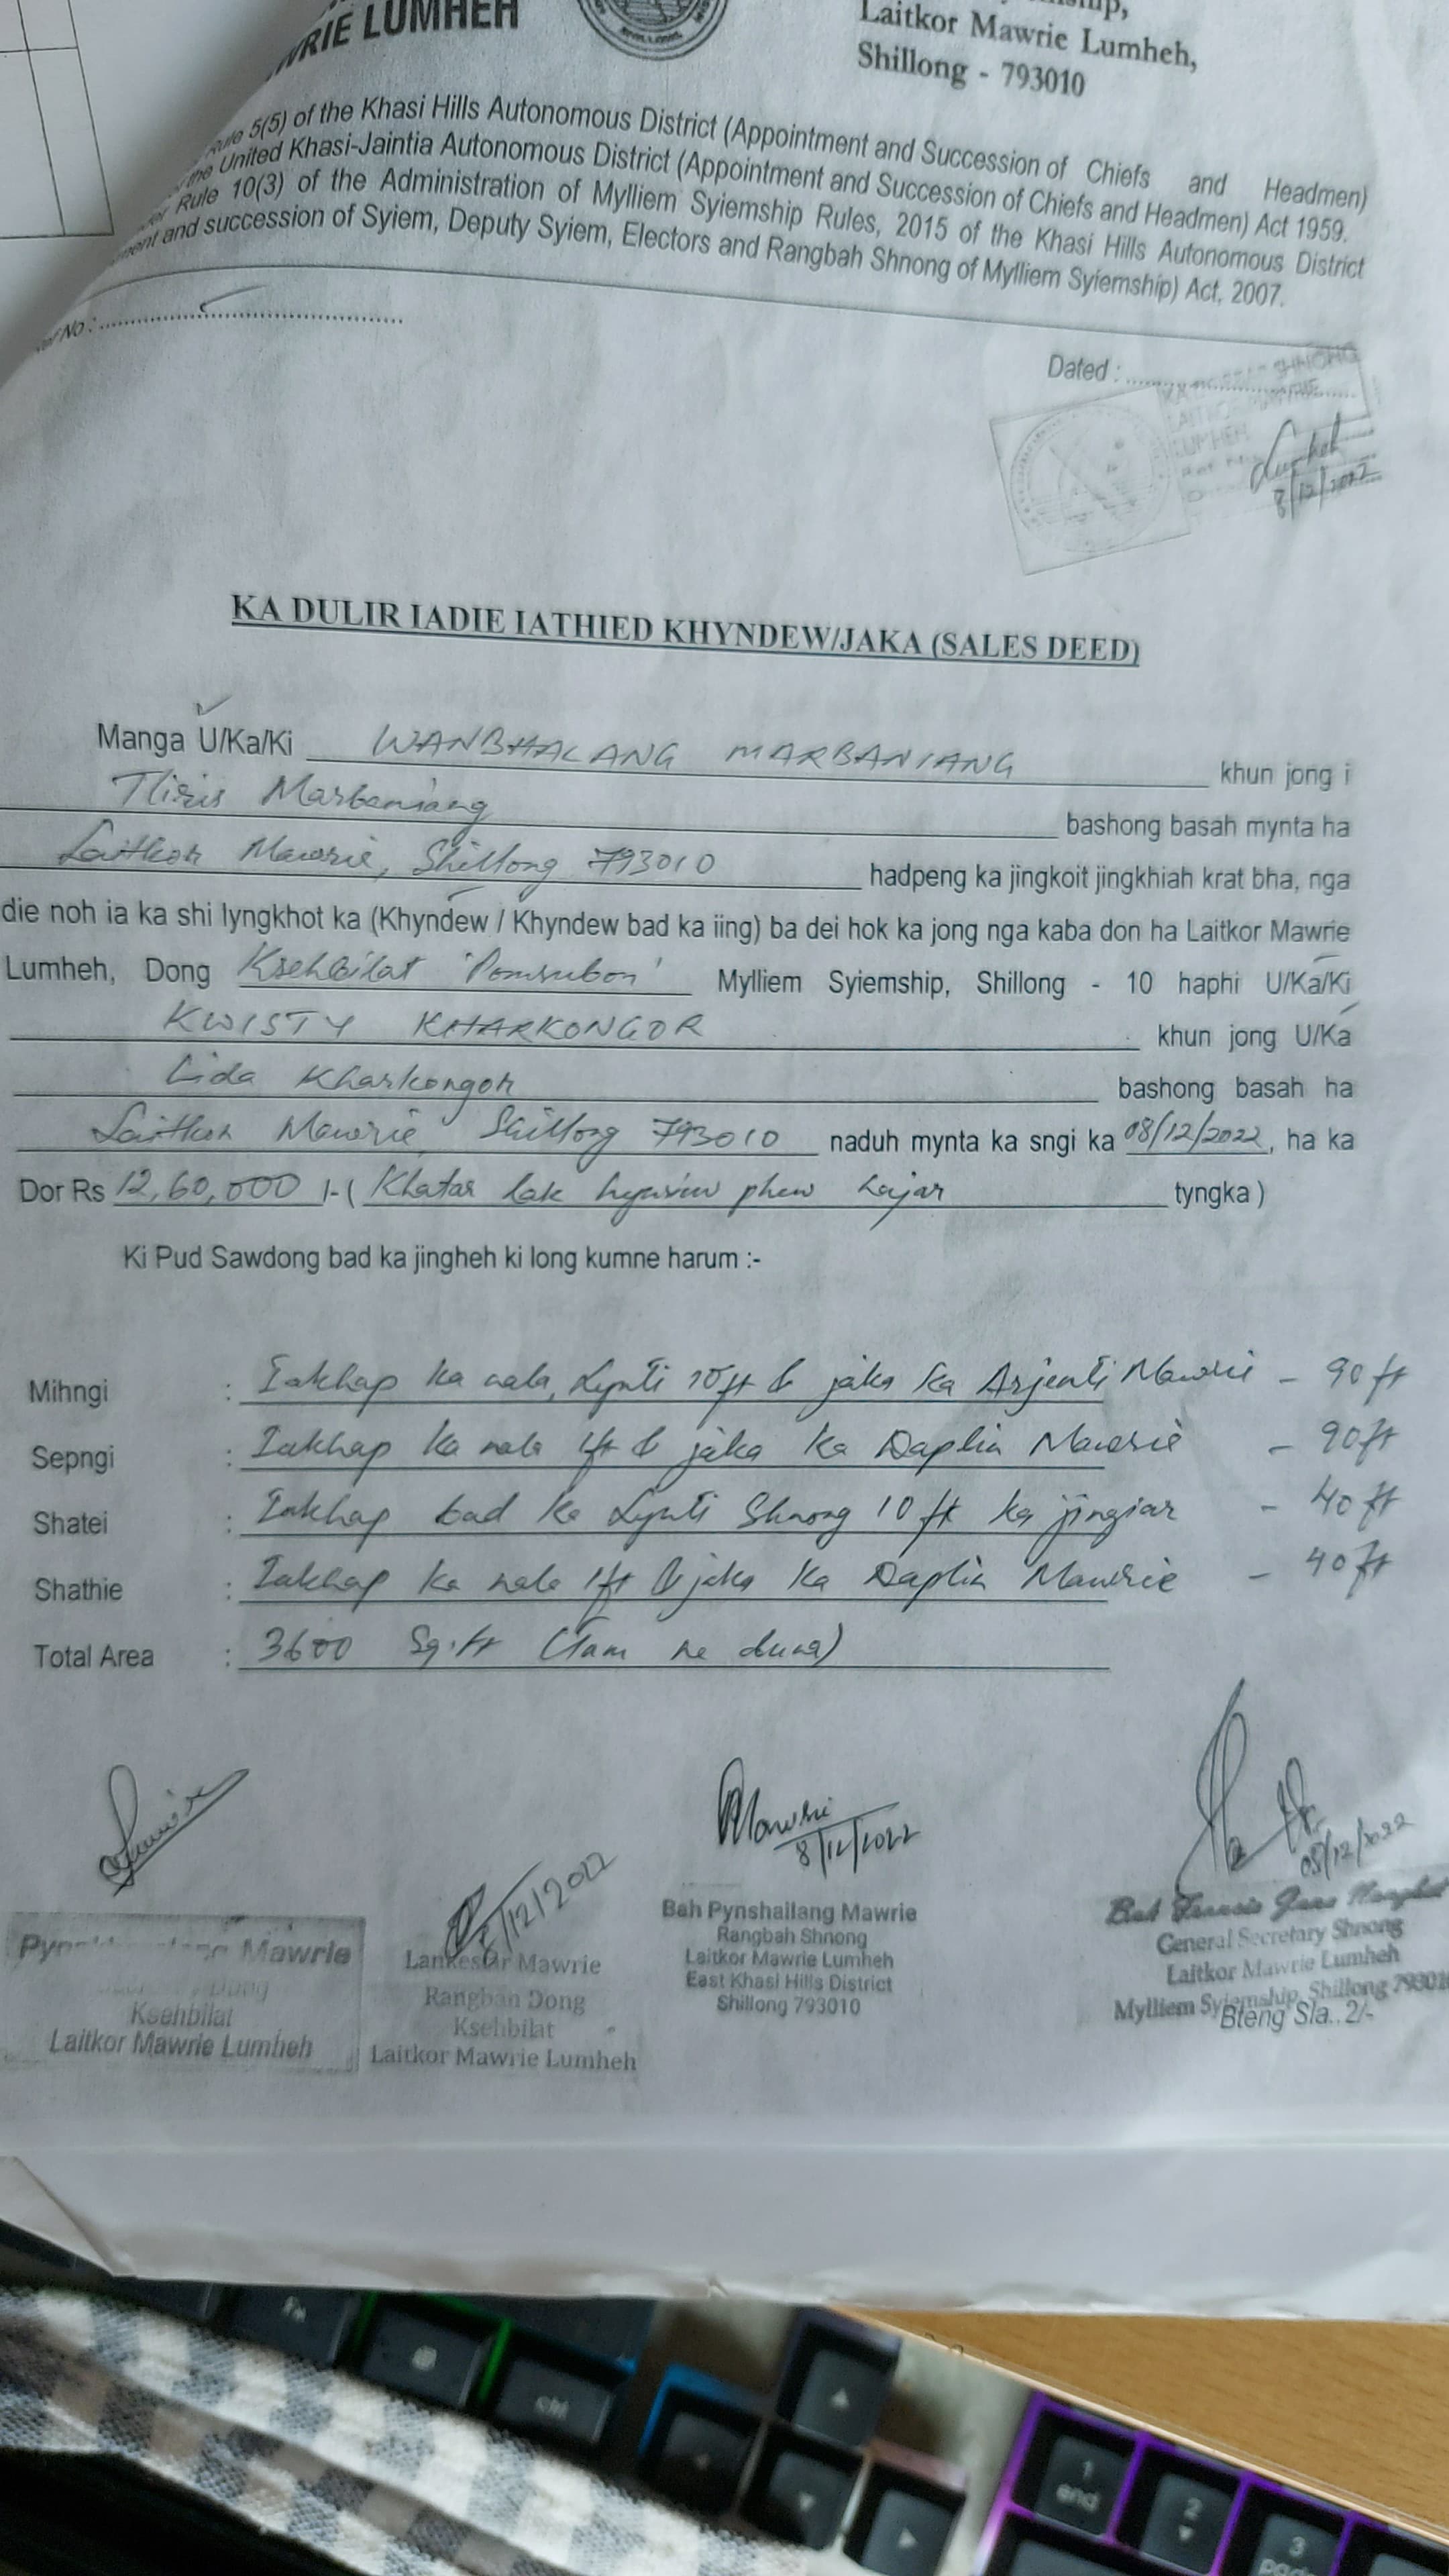 WRIE LUMHEH
Laitkor Mawrie Lumheh,
Shillong - 793010
Rule 5(5) of the Khasi Hills Autonomous District (Appointment and Succession of Chiefs and Headmen)
the United Khasi-Jaintia Autonomous District (Appointment and Succession of Chiefs and Headmen) Act 1959.
Rule 10(3) of the Administration of Mylliem Syiemship Rules, 2015 of the Khasi Hills Autonomous District
and succession of Syiem, Deputy Syiem, Electors and Rangbah Shnong of Mylliem Syiemship) Act, 2007.
No :
Dated :
SHNONG
LUMHEH
8/12/2022
KA DULIR IADIE IATHIED KHYNDEW/JAKA (SALES DEED)
Manga U/Ka/Ki WANBHALANG MARBANIANG khun jong i
Marbaniang bashong basah mynta ha
Laitkor Mawrie, Shillong 793010 hadpeng ka jingkoit jingkhiah krat bha, nga
die noh ia ka shi lyngkhot ka (Khyndew / Khyndew bad ka iing) ba dei hok ka jong nga kaba don ha Laitkor Mawrie
Lumheh, Dong Ksehbilat 'Pomsubon' Mylliem Syiemship, Shillong - 10 haphi U/Ka/Ki
KWISTY KHARKONGOR khun jong U/Ka
Lida Kharkongor bashong basah ha
Laitkor Mawrie Shillong 793010 naduh mynta ka sngi ka 08/12/2022, ha ka
Dor Rs 12,60,000 /- ( Khatar lak hynriew phew hajar tyngka )
Ki Pud Sawdong bad ka jingheh ki long kumne harum :-
Mihngi : Iakhap ka nala, Lynti 10ft & jaka Ka Arjenti Mawrie - 90 ft
Sepngi : Iakhap ka nala 1ft & jaka Ka Daplin Mawrie - 90ft
Shatei : Iakhap bad ka Lynti Shnong 10 ft ka jingiar - 40 ft
Shathie : Iakhap ka nala 1ft & jaka Ka Daplin Mawrie - 40 ft
Total Area : 3600 Sq.ft (Tam ne duna)
Mawrie
8/12/2022
08/12/2022
/12/2022
Mawrie
Dong
Ksehbilat
Laitkor Mawrie Lumheh
Lankestar Mawrie
Rangbah Dong
Ksehbilat
Laitkor Mawrie Lumheh
Bah Pynshailang Mawrie
Rangbah Shnong
Laitkor Mawrie Lumheh
East Khasi Hills District
Shillong 793010
Bah Francis
General Secretary Shnong
Laitkor Mawrie Lumheh
Mylliem Syiemship, Shillong 79301
Bteng Sla..2/-
Fn
ctrl
1
end
2
3